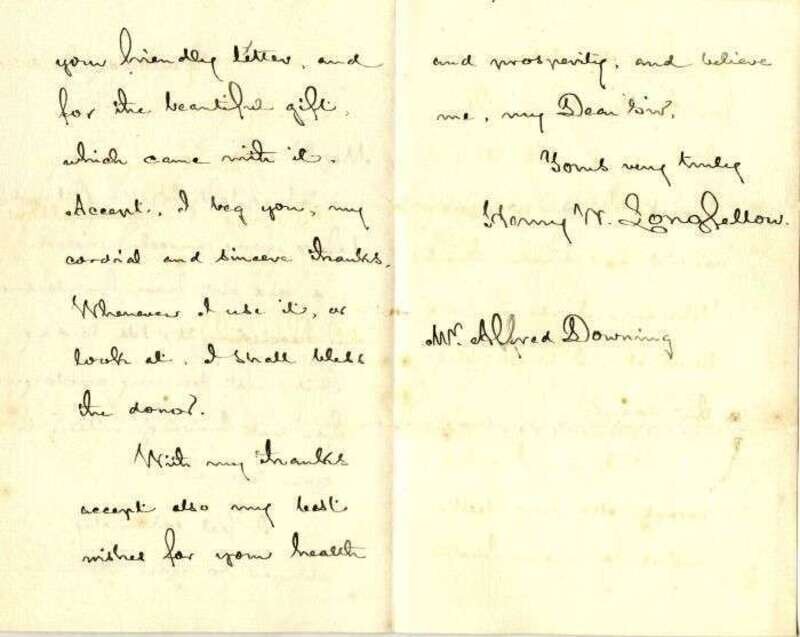 your friendly letter, and
for the beautiful gift,
which came with it.
Accept, I beg you, my
cordial and sincere thanks.
Whenever I use it, or
look at, I shall bless
the donor.
With my thanks
accept also my best
wishes for your health
and prosperity, and believe
me, my Dear Sir,
Yours very truly
Henry W. Longfellow.
Mr. Alfred Downing